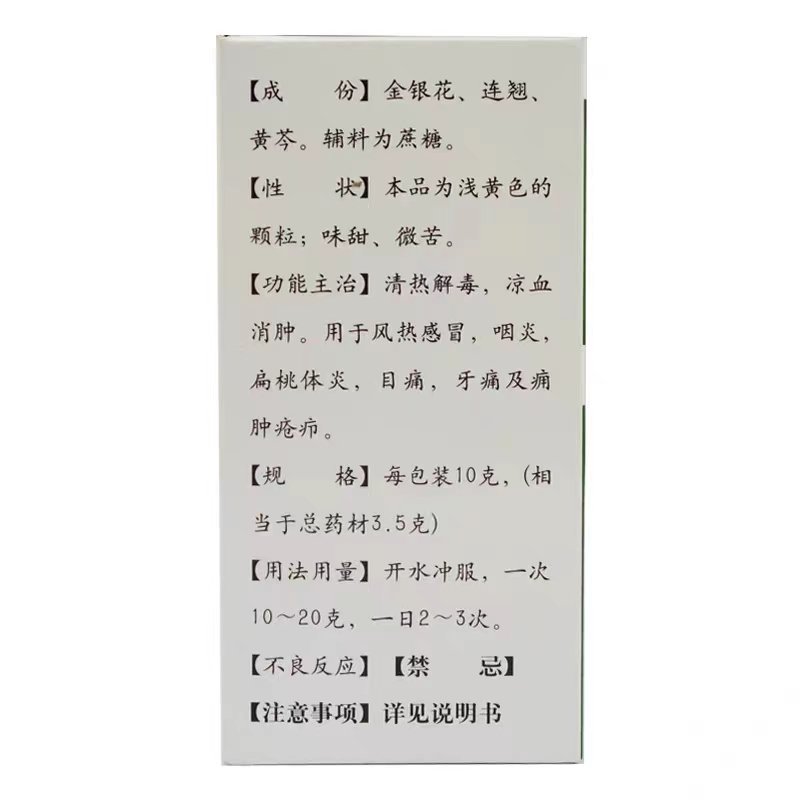 【成　　份】金银花、连翘、
黄芩。辅料为蔗糖。
【性　　状】本品为浅黄色的
颗粒；味甜、微苦。
【功能主治】清热解毒，凉血
消肿。用于风热感冒，咽炎，
扁桃体炎，目痛，牙痛及痈
肿疮疖。
【规　　格】每包装10克，(相
当于总药材3.5克)
【用法用量】开水冲服，一次
10～20克，一日2～3次。
【不良反应】【禁　　忌】
【注意事项】详见说明书